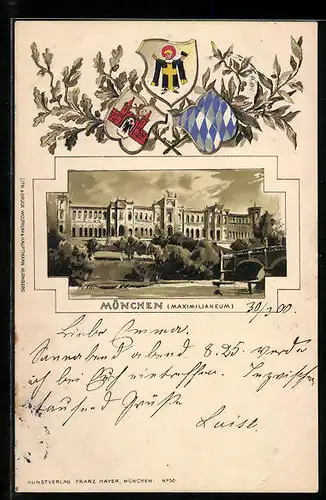 LITH. & DRUCK: WOLFRUM & HAUPTMANN, NÜRNBERG.
MÜNCHEN (MAXIMILIANEUM)
30/3.00.
Liebe Emma.
Sonnabend abend 8.35. werde
ich bei Euch eintreffen. Inzwischen
tausend Grüße
Luise.
KUNSTVERLAG FRANZ MAYER, MÜNCHEN. No 30